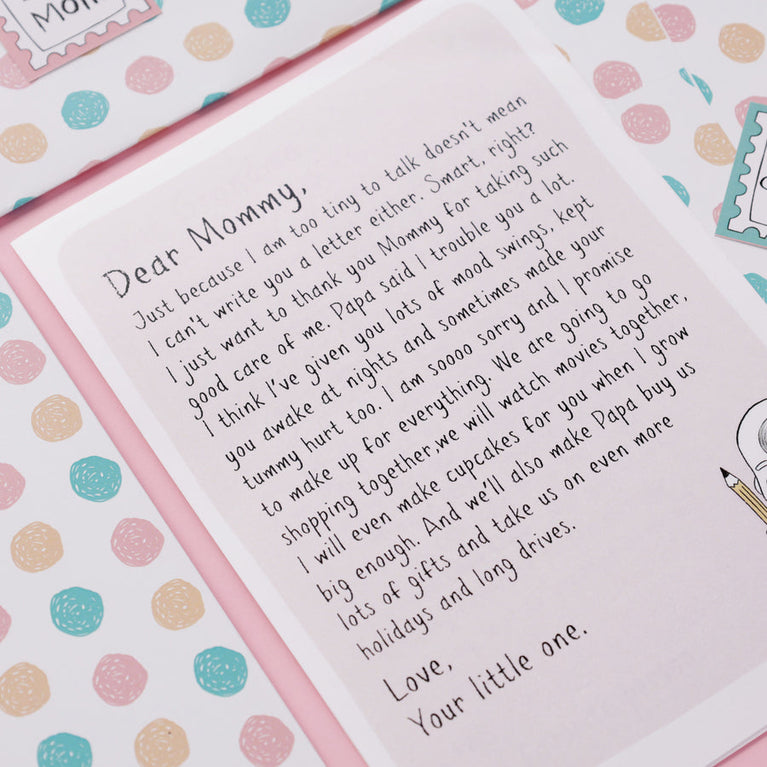 Mom
Dear Mommy,
Just because I am too tiny to talk doesn't mean
I can't write you a letter either. Smart, right?
I just want to thank you Mommy for taking such
good care of me. Papa said I trouble you a lot.
I think I've given you lots of mood swings, kept
you awake at nights and sometimes made your
tummy hurt too. I am soooo sorry and I promise
to make up for everything. We are going to go
shopping together,we will watch movies together,
I will even make cupcakes for you when I grow
big enough. And we'll also make Papa buy us
lots of gifts and take us on even more
holidays and long drives.
Love,
Your little one.